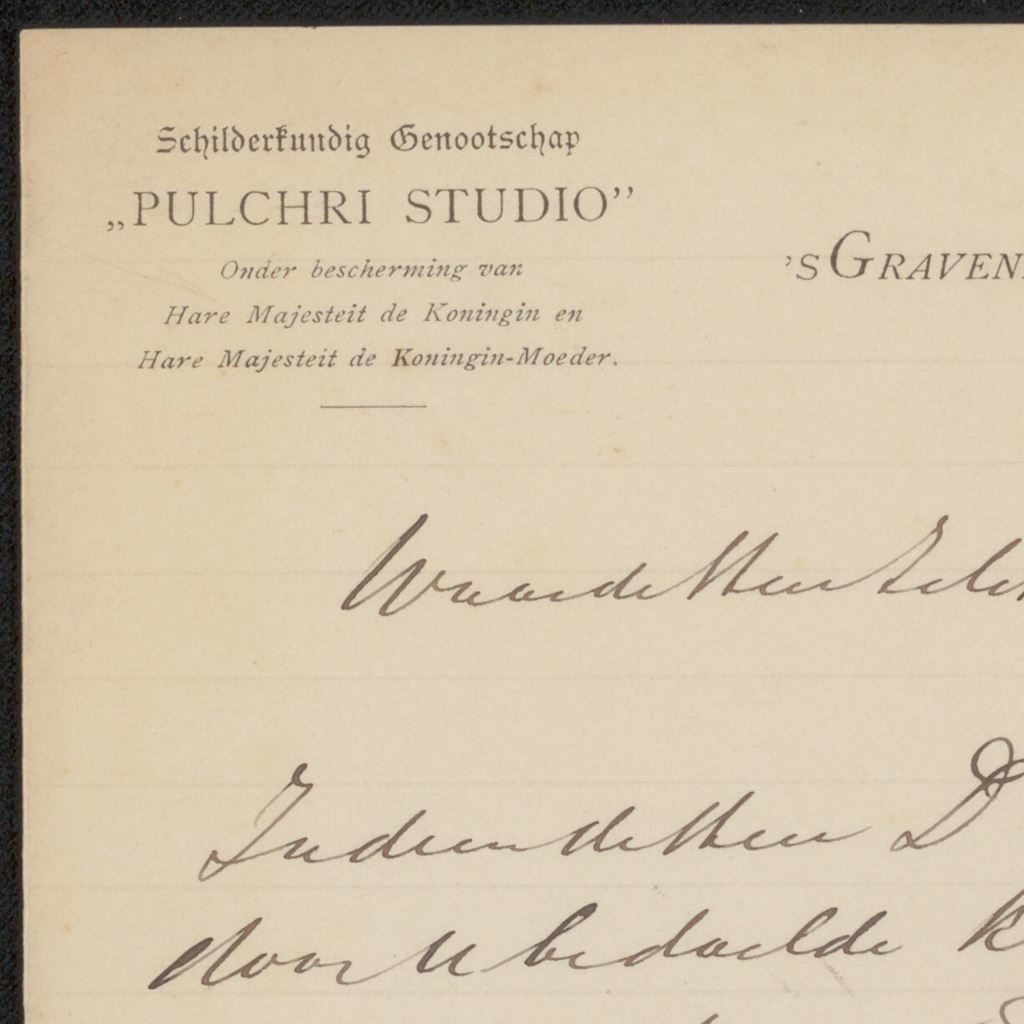 Schilderkundig Genootschap
„PULCHRI STUDIO”
Onder bescherming van
Hare Majesteit de Koningin en
Hare Majesteit de Koningin-Moeder.
'SGRAVEN
Waarde Heer
Indien de Heer D
door U bedoelde